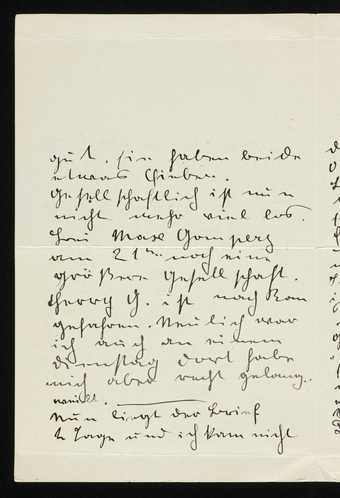 gut. Sie haben beide
etwas Fieber.
Gesellschaftlich ist nun
nicht mehr viel los.
bei Max Gomperz
am 21ten noch eine
größere Gesellschaft.
Harry G. ist nach Rom
gefahren. Neulich war
ich auch an einem
Dienstag dort habe
mich aber recht gelang-
weilt.
Nun liegt der Brief
2 Tage und ich kam nicht